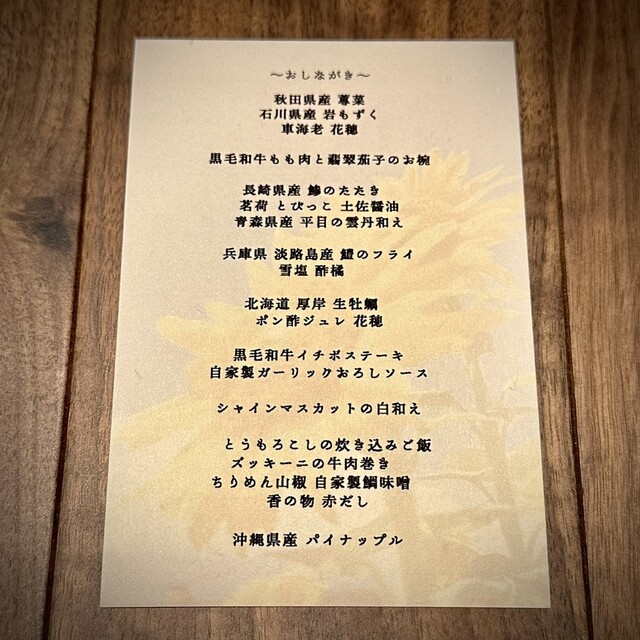 〜おしながき〜
秋田県産 蓴菜
石川県産 岩もずく
車海老 花穂
黒毛和牛もも肉と翡翠茄子のお椀
長崎県産 鯵のたたき
茗荷 とびっこ 土佐醤油
青森県産 平目の雲丹和え
兵庫県 淡路島産 鱧のフライ
雪塩 酢橘
北海道 厚岸 生牡蠣
ポン酢ジュレ 花穂
黒毛和牛イチボステーキ
自家製ガーリックおろしソース
シャインマスカットの白和え
とうもろこしの炊き込みご飯
ズッキーニの牛肉巻き
ちりめん山椒 自家製鯛味噌
香の物 赤だし
沖縄県産 パイナップル